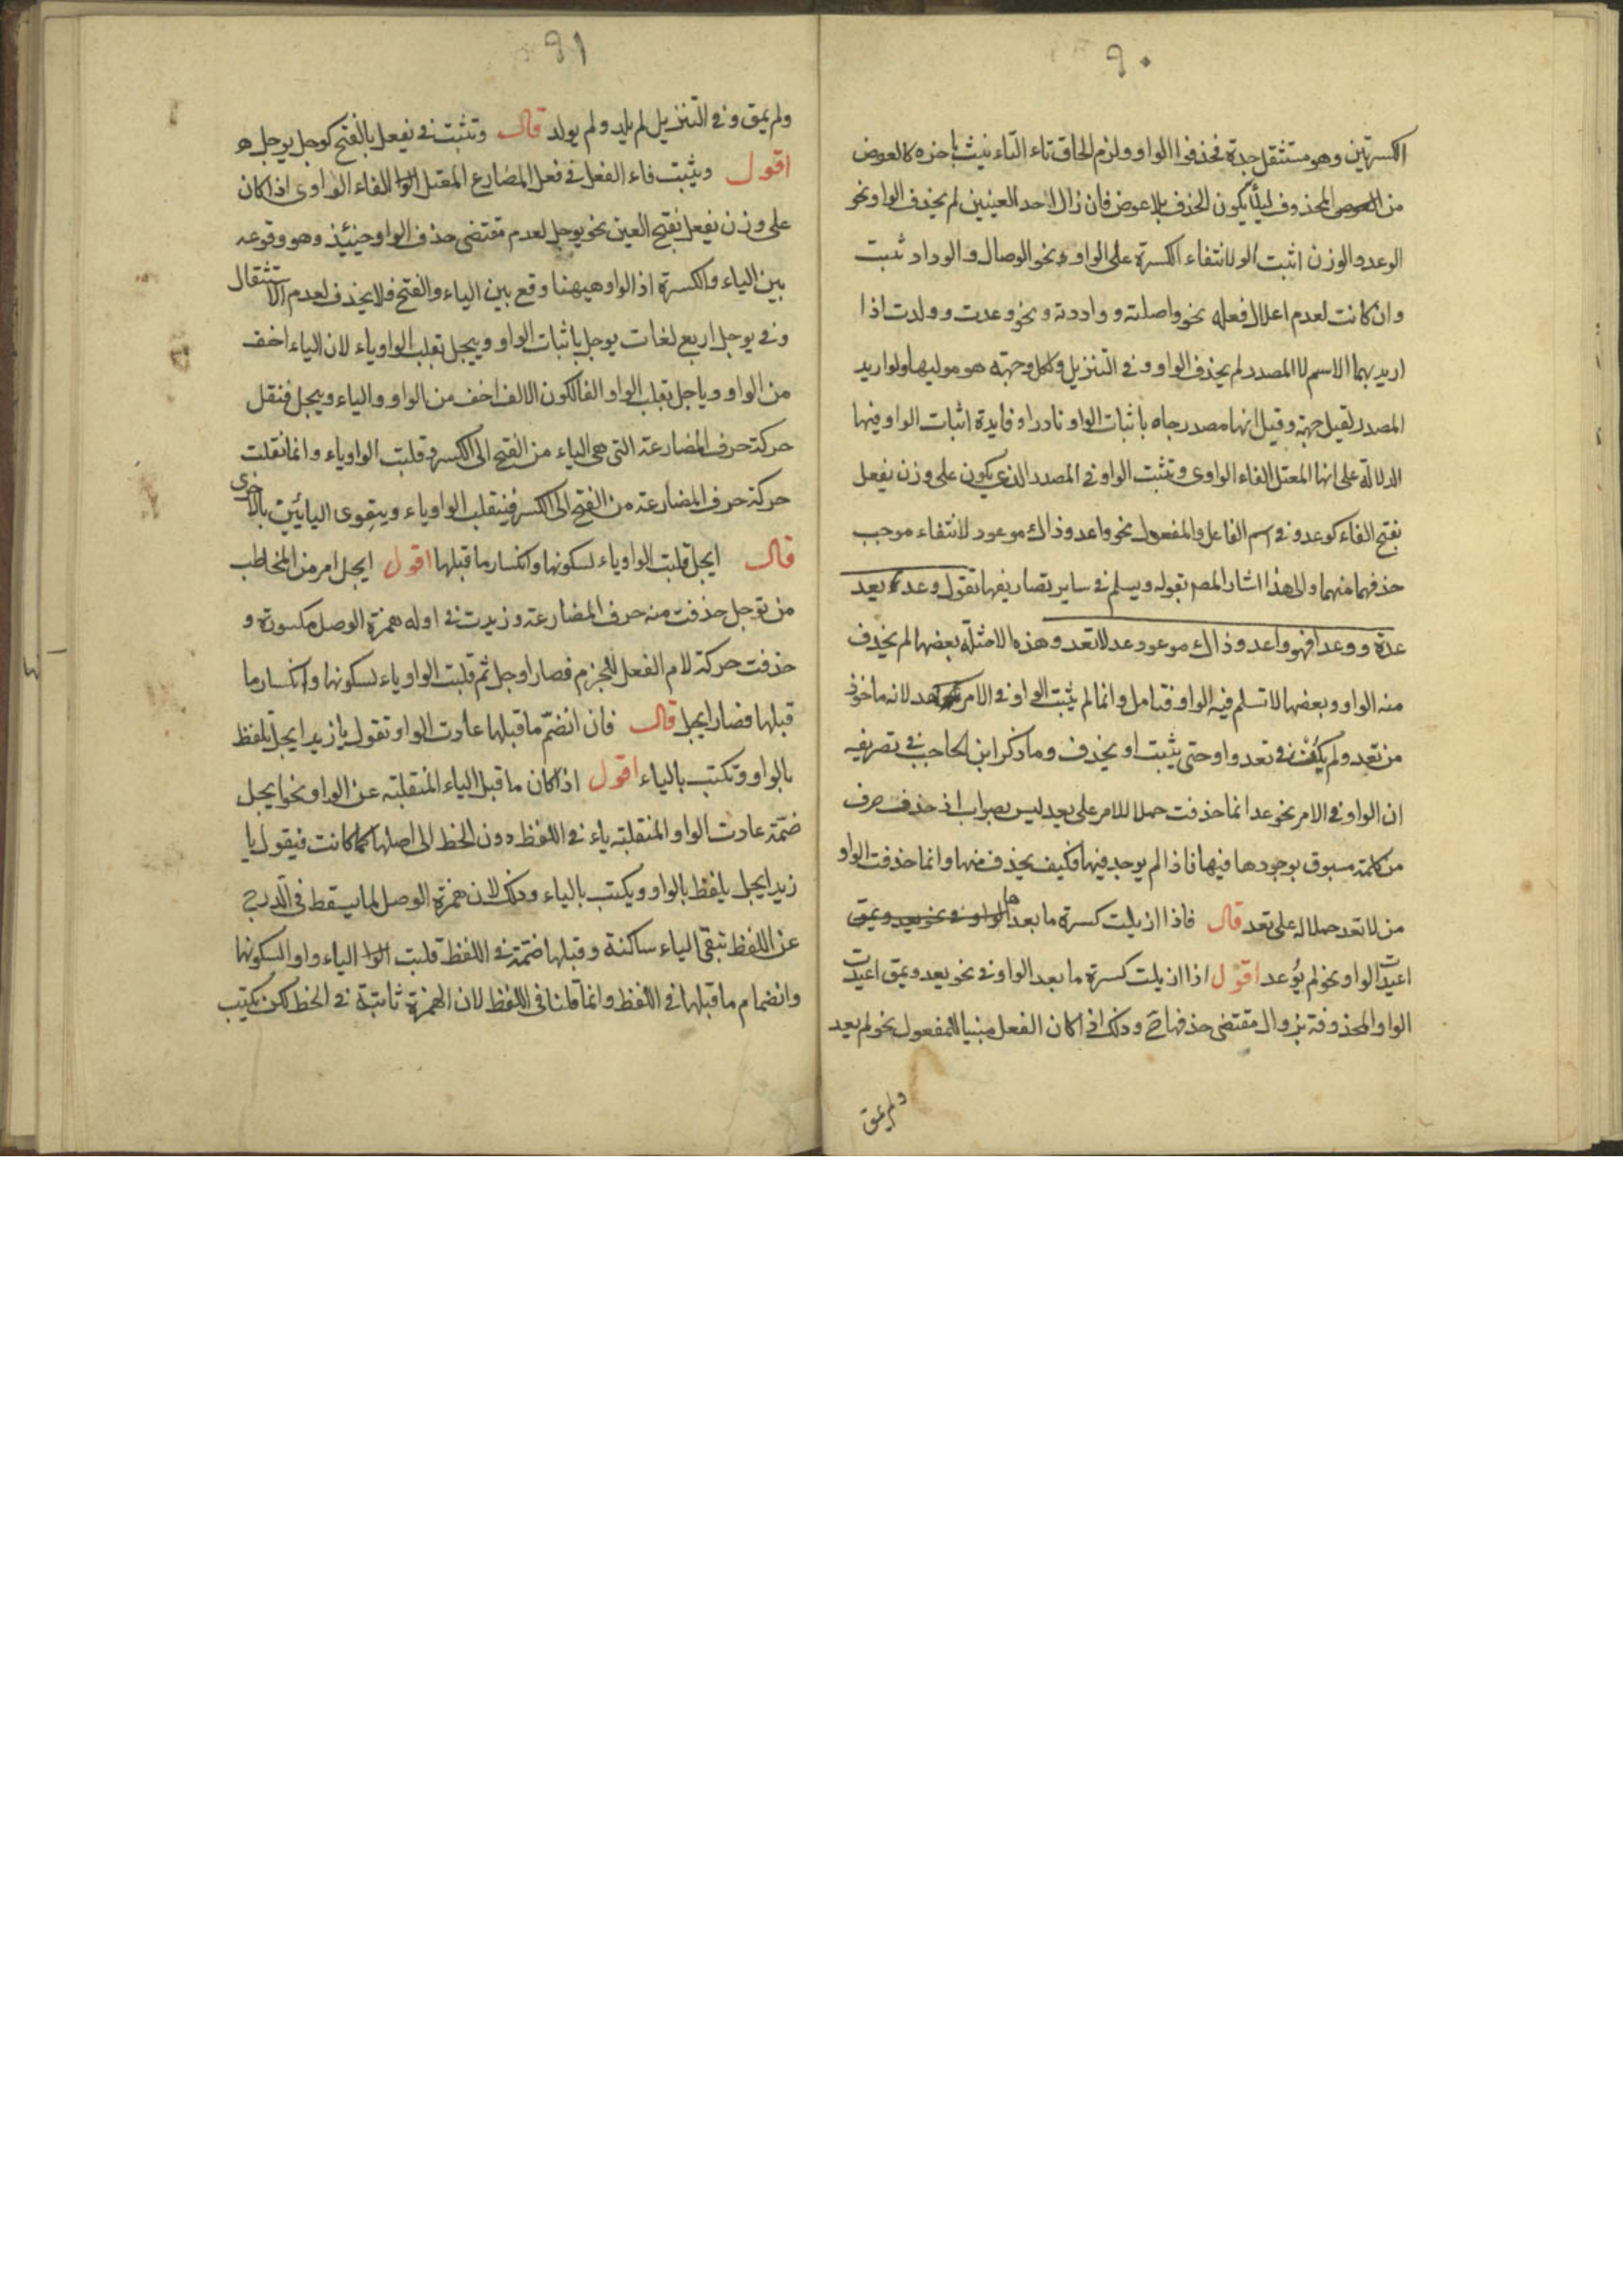 ٩٠
الكسرتين وهو مستثقل جدة فحذفوا الواو ولزم الحاق تاء التاء نيث باخره كالعوض
من العوص المحذوف ليلّا يكون الحذف بلا عوض فان زال احد العينين لم يحذف الواو نحو
الوعد والوزن اثبت الو لانتفاء الكسرة على الواو ونحو الوصال والوداد ثبت
وان كانت لعدم اعلال فعله نحو واصلته ووادته ونحو وعدت وولدت اذا
اريد بهما الاسم لا المصدر لم يحذف الواو وفى التنزيل ولكل وجهة هو موليها ولو اريد
المصدر لقيل جهة وقيل انها مصدر جاه باثبات الواو نادرا وفايدة اثبات الواو فيها
الدلالة على انها المعتل الفاء الواوى وتثبت الواو فى المصدر الذى يكون على وزن يفعل
بفتح الفاء كوعد وفى اسم الفاعل والمفعول نحو واعد وذاك موعود لانتفاء موجب
حذفهما منهما والى هذا اشار المصـ بقوله ويسلم فى ساير تصاريفها تقول وعد يعد
عدة ووعدا فهو واعد وذاك موعود عد لا تعد وهذه الامثلة بعضها لم يحذف
منه الواو وبعضها لا تسلم فيه الواو فتامل وانما لم يثبت الواو فى الامر عد لانه ماخوذ
من تعد ولم يكن فى تعد واو حتى يثبت او يحذف وما ذكر ابن الحاجب فى تصريفه
ان الواو فى الامر نحو عد انما حذفت حملا للامر على يعد ليس بصواب اذ حذف حرف
من كلمة مسبوق بوجودها فيها فاذا لم يوجد فيها فكيف يحذف منها وانما حذفت الواو
من لا تعد حملا له على تعد قال فاذا ازيلت كسرة ما بعدها الواو فى نحو يعد ويمق
اعيدت الواو نحو لم يُوعد اقول اذا ازيلت كسرة ما بعد الواو فى نحو يعد ويمق اعيدت
الواو المحذوفة بزوال مقتضى حذفها ح وذلك اذا كان الفعل مبنيا للمفعول نحو لم يعد
ولم يمق
٩١
ولم يمق وفى التنزيل لم يلد ولم يولد قال وتثبت فى يفعل بالفتح كوجل يوجل ه
اقول ويثبت فاء الفعل فى فعل المضارع المعتل الوا الفاء الواوى اذا كان
على وزن يفعل بفتح العين نحو يوجل لعدم مقتضى حذف الواو حينيذ وهو وقوعه
بين الياء والكسرة اذ الواو هيهنا وقع بين الياء والفتح فلا يحذف لعدم الاستثقال
وفى يوجل اربع لغات يوجل باثبات الواو وييجل بقلب الواو ياء لان الياء اخف
من الواو وياجل بقلب الواو الفا لكون الالف اخف من الواو والياء وييجل فنقل
حركة حرف المضارعة التى هى الياء من الفتح الى الكسر وقلبت الواو ياء وانما نقلت
حركة حرف المضارعة من الفتح الى الكسر فينقلب الواو ياء ويتقوى اليائين بالاخرى
قال ايجل قلبت الواو ياء لسكونها وانكسار ما قبلها اقول ايجل امر من المخاطب
من توجل حذفت منه حرف المضارعة وزيدت فى اوله همزة الوصل مكسورة و
حذفت حركة لام الفعل للجزم فصار اوجل ثم قلبت الواو ياء لسكونها وانكسار ما
قبلها فصار ايجل قال فان انضمّ ما قبلها عادت الواو تقول يا زيد ايجل تلفظ
بالواو وتكتب بالياء اقول اذا كان ما قبل الياء المنقلبة عن الواو نحو ايجل
ضمّة عادت الواو المنقلبة ياء فى اللفظ دون الخط الى اصلها كما كانت فيقول يا
زيد ايجل يلفظ بالواو ويكتب بالياء وذلك لان همزة الوصل لما يسقط فى الدرج
عن اللفظ تبقى الياء ساكنة وقبلها ضمّة فى اللفظ قلبت الوا الياء واوا لسكونها
وانضمام ما قبلها فى اللفظ وانما قلنا فى اللفظ لان الهمزة ثابتة فى الخط لكن يكتب